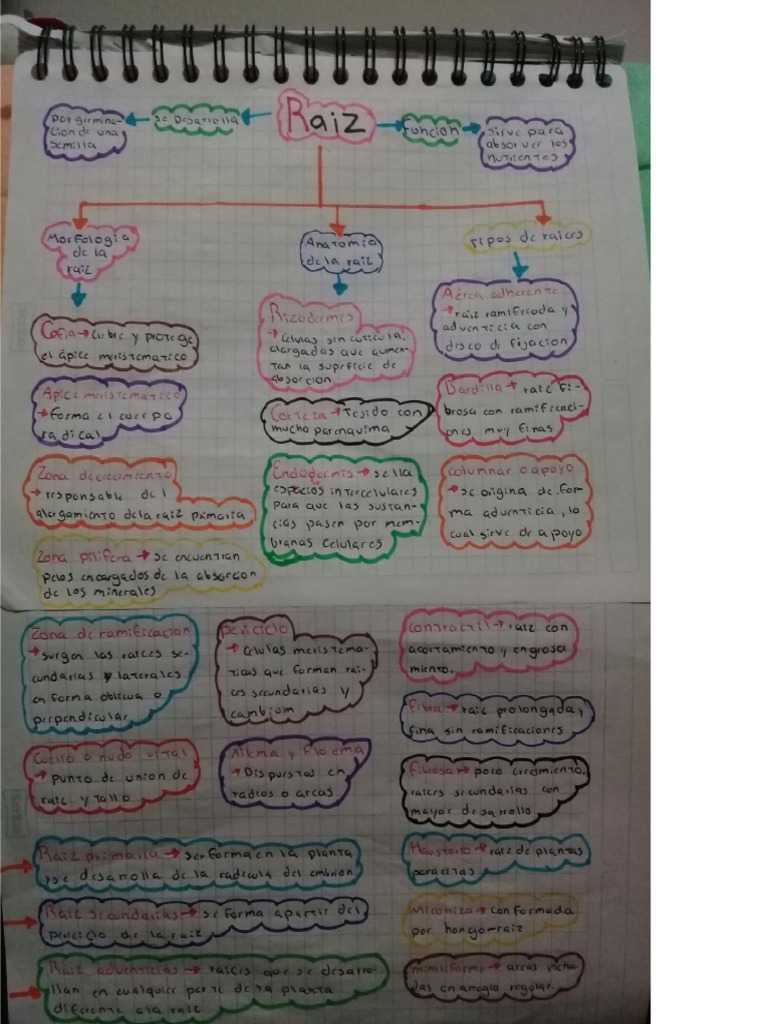 Raiz
se Desarrolla
Por germina-
cion de una
semilla
Función
sirve para
absorver los
nutrientes
Morfologia
de la
raiz
Cofia → cubre y protege
el ápice meristematico
Apice meristematico
→ forma el cuerpo
radical
Zona de crecimiento
→ responsable del
alargamiento de la raiz primaria
Zona pilifera → se encuentran
pelos encargados de la absorcion
de los minerales
Zona de ramificacion
→ surgen las raices se-
cundarias y laterales
en forma oblicua o
perpendicular
Cuello o nudo vital
→ punto de union de
raiz y tallo
Anatomia
de la raiz
Rizodermis
→ celulas sin cuticula,
alargadas que aumen-
tan la superficie de
absorcion
Corteza → Tejido con
mucho parenquima
Endodermis → sella
espacios intercelulares
para que las sustan-
cias pasen por mem-
branas celulares
periciclo
→ celulas meristema-
ticas que forman rai-
ces secundarias y
cambium
Xilema y floema
→ Dispuestos en
radios o arcos
Tipos de raices
Aérea adherente
→ raiz ramificada y
adventicia con
disco de fijacion
Bardilla → raiz fi-
brosa con ramificaci-
ones muy finas
columnar o apoyo
→ se origina de for-
ma adventicia, lo
cual sirve de apoyo
contractil → raiz con
acortamiento y engrosa
miento.
Fibra → raiz prolongada y
fina sin ramificaciones
fibrosa → poco crecimiento,
raices secundarias con
mayor desarrollo
Haustorio → raiz de plantas
parasitas
Micorriza → conformada
por hongo-raiz
→ areas incha-
das en arreglo regular.
Raiz primaria → se forma en la planta
y se desarrolla de la radicula del embrion
Raiz secundarias → se forma apartir del
periciclo de la raiz
Raiz adventicias → raices que se desarro-
llan en cualquier parte de la planta
diferente a la raiz